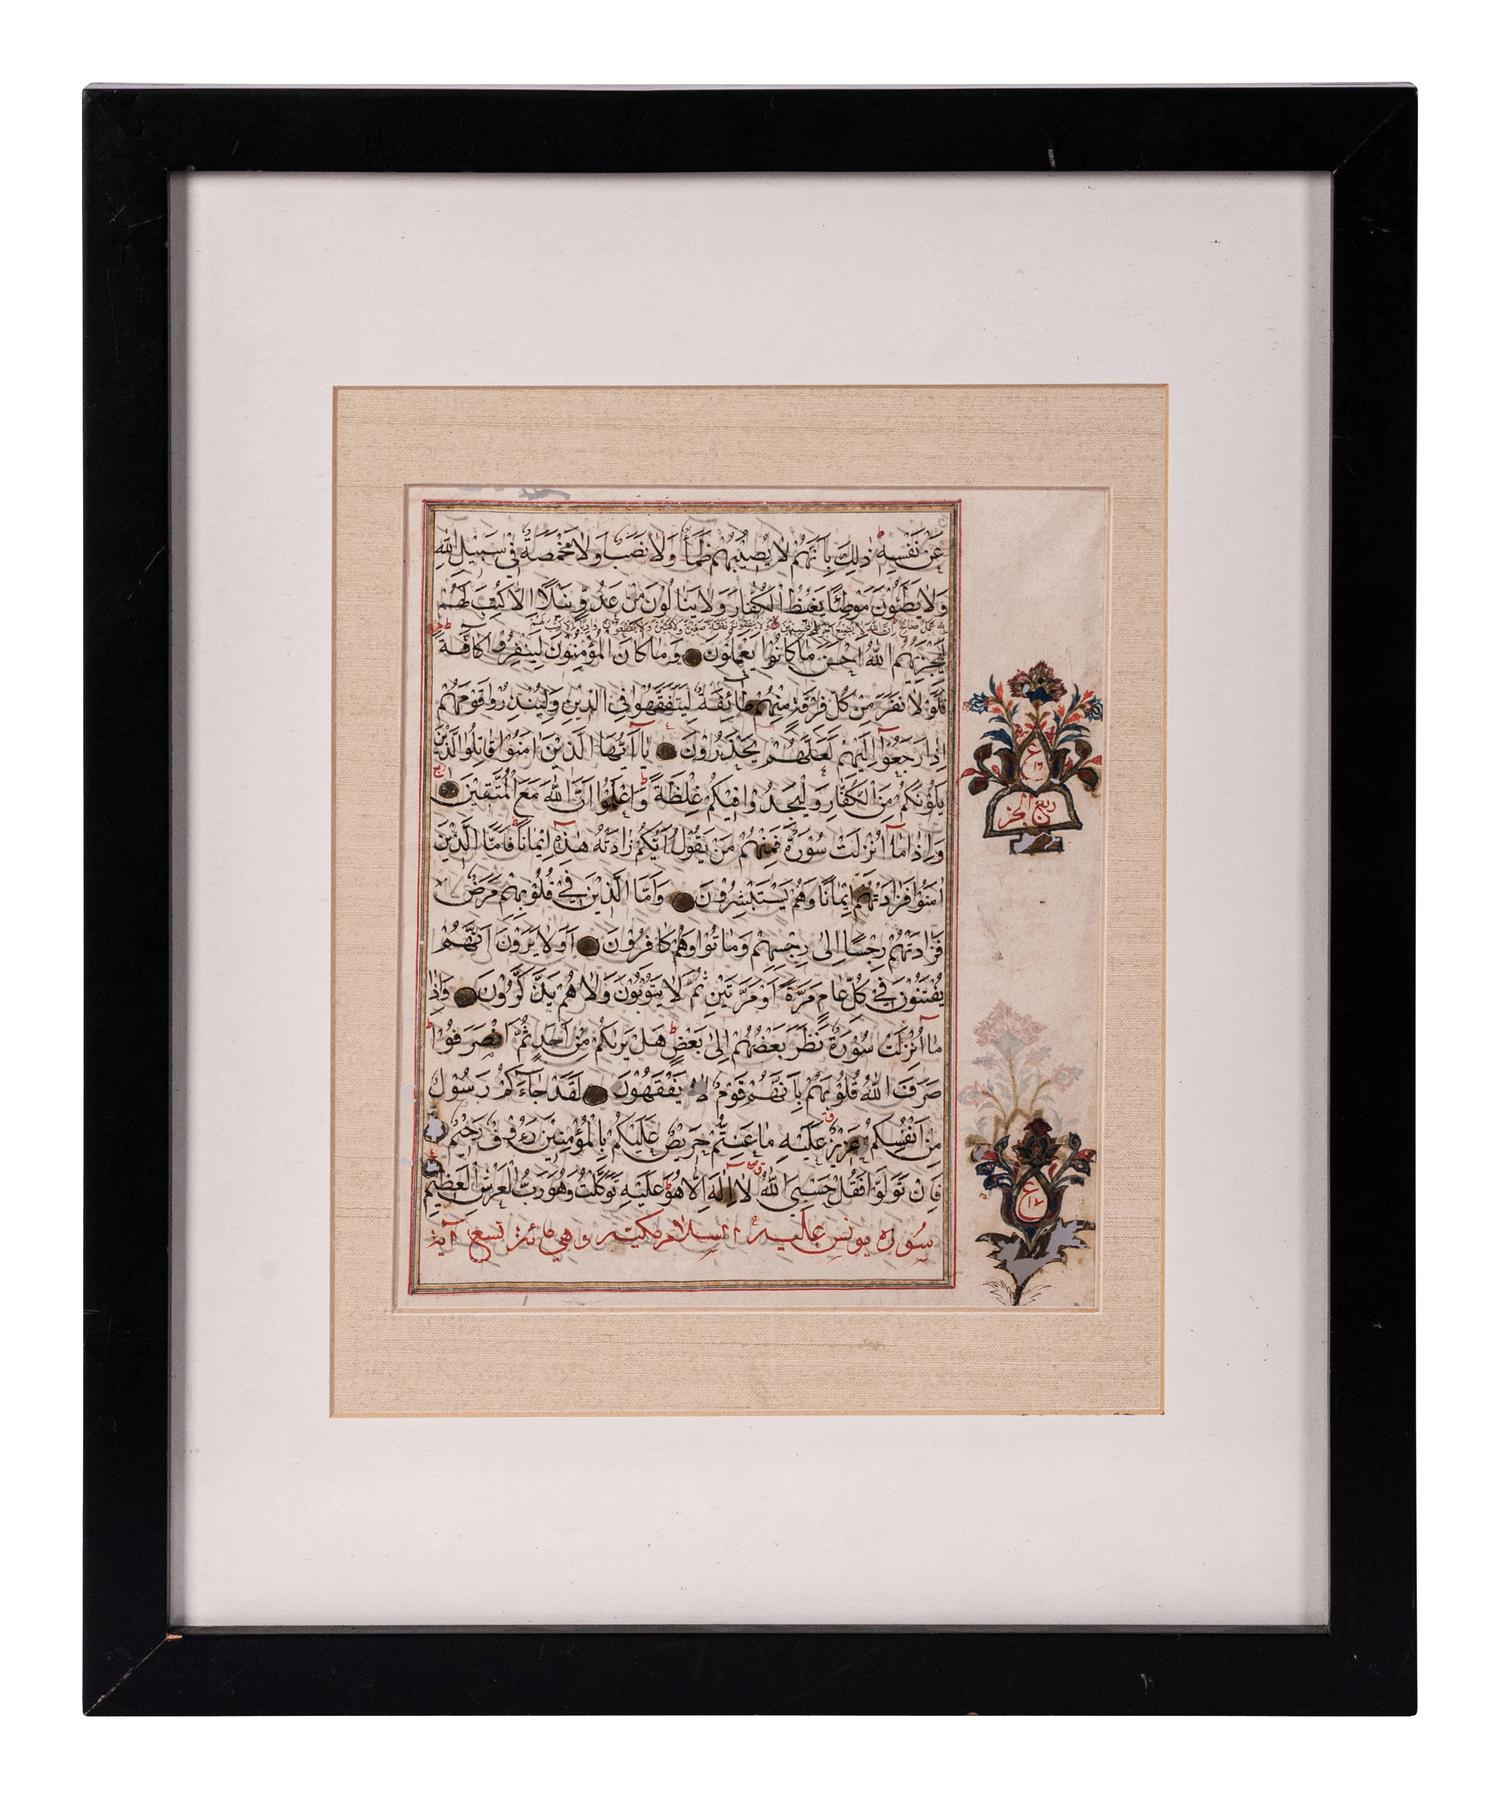 عَنْ نَفْسِهِ ذٰلِكَ بِاَنَّهُمْ لَا يُصِيبُهُمْ ظَمَأٌ وَلَا نَصَبٌ وَلَا مَخْمَصَةٌ فِي سَبِيلِ اللهِ
وَلَا يَطَئُونَ مَوْطِئًا يَغِيظُ الْكُفَّارَ وَلَا يَنَالُونَ مِنْ عَدُوٍّ نَيْلًا اِلَّا كُتِبَ لَهُمْ
بِهِ عَمَلٌ صَالِحٌ اِنَّ اللهَ لَا يُضِيعُ اَجْرَ الْمُحْسِنِينَ وَلَا يُنْفِقُونَ نَفَقَةً صَغِيرَةً وَلَا كَبِيرَةً وَلَا يَقْطَعُونَ وَادِيًا اِلَّا كُتِبَ لَهُمْ
لِيَجْزِيَهُمُ اللهُ اَحْسَنَ مَا كَانُوا يَعْمَلُونَ وَمَا كَانَ الْمُؤْمِنُونَ لِيَنْفِرُوا كَافَّةً
فَلَوْلَا نَفَرَ مِنْ كُلِّ فِرْقَةٍ مِنْهُمْ طَائِفَةٌ لِيَتَفَقَّهُوا فِي الدِّينِ وَلِيُنْذِرُوا قَوْمَهُمْ
اِذَا رَجَعُوا اِلَيْهِمْ لَعَلَّهُمْ يَحْذَرُونَ يَا اَيُّهَا الَّذِينَ اٰمَنُوا قَاتِلُوا الَّذِينَ
يَلُونَكُمْ مِنَ الْكُفَّارِ وَلْيَجِدُوا فِيكُمْ غِلْظَةً وَاعْلَمُوا اَنَّ اللهَ مَعَ الْمُتَّقِينَ
وَاِذَا مَا اُنْزِلَتْ سُورَةٌ فَمِنْهُمْ مَنْ يَقُولُ اَيُّكُمْ زَادَتْهُ هٰذِهِ اِيمَانًا فَاَمَّا الَّذِينَ
اٰمَنُوا فَزَادَتْهُمْ اِيمَانًا وَهُمْ يَسْتَبْشِرُونَ وَاَمَّا الَّذِينَ فِي قُلُوبِهِمْ مَرَضٌ
فَزَادَتْهُمْ رِجْسًا اِلٰى رِجْسِهِمْ وَمَاتُوا وَهُمْ كَافِرُونَ اَوَلَا يَرَوْنَ اَنَّهُمْ
يُفْتَنُونَ فِي كُلِّ عَامٍ مَرَّةً اَوْ مَرَّتَيْنِ ثُمَّ لَا يَتُوبُونَ وَلَا هُمْ يَذَّكَّرُونَ وَاِذَا
مَا اُنْزِلَتْ سُورَةٌ نَظَرَ بَعْضُهُمْ اِلٰى بَعْضٍ هَلْ يَرٰيكُمْ مِنْ اَحَدٍ ثُمَّ انْصَرَفُوا
صَرَفَ اللهُ قُلُوبَهُمْ بِاَنَّهُمْ قَوْمٌ لَا يَفْقَهُونَ لَقَدْ جَاءَكُمْ رَسُولٌ
مِنْ اَنْفُسِكُمْ عَزِيزٌ عَلَيْهِ مَا عَنِتُّمْ حَرِيصٌ عَلَيْكُمْ بِالْمُؤْمِنِينَ رَءُوفٌ رَحِيمٌ
فَاِنْ تَوَلَّوْا فَقُلْ حَسْبِيَ اللهُ لَا اِلٰهَ اِلَّا هُوَ عَلَيْهِ تَوَكَّلْتُ وَهُوَ رَبُّ الْعَرْشِ الْعَظِيمِ
سورة يونس عليه السلام مكية وهي مائة تسع آية
ع
١٦
ربع الحزب
ع